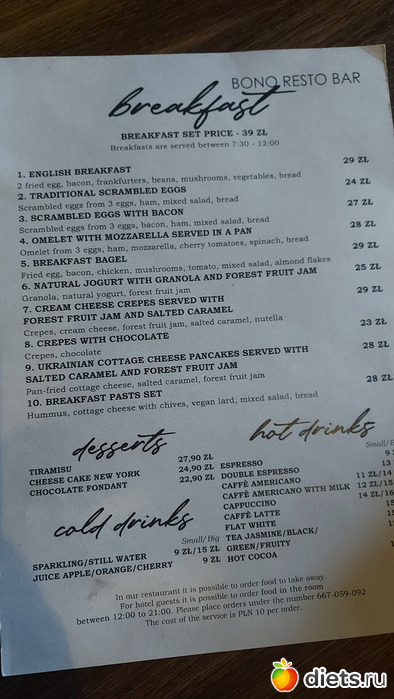 BONO RESTO BAR
breakfast
BREAKFAST SET PRICE - 39 ZŁ
Breakfasts are served between 7:30 - 12:00
1. ENGLISH BREAKFAST 29 ZŁ
2 fried egg, bacon, frankfurters, beans, mushrooms, vegetables, bread
2. TRADITIONAL SCRAMBLED EGGS 24 ZŁ
Scrambled eggs from 3 eggs, ham, mixed salad, bread
3. SCRAMBLED EGGS WITH BACON 27 ZŁ
Scrambled eggs from 3 eggs, bacon, ham, mixed salad, bread
4. OMELET WITH MOZZARELLA SERVED IN A PAN 28 ZŁ
Omelet from 3 eggs, ham, mozzarella, cherry tomatoes, spinach, bread
5. BREAKFAST BAGEL 29 ZŁ
Fried egg, bacon, chicken, mushrooms, tomato, mixed salad, almond flakes
6. NATURAL JOGURT WITH GRANOLA AND FOREST FRUIT JAM 25 ZŁ
Granola, natural yogurt, forest fruit jam
7. CREAM CHEESE CREPES SERVED WITH 29 ZŁ
FOREST FRUIT JAM AND SALTED CARAMEL
Crepes, cream cheese, forest fruit jam, salted caramel, nutella
8. CREPES WITH CHOCOLATE 23 ZŁ
Crepes, chocolate
9. UKRAINIAN COTTAGE CHEESE PANCAKES SERVED WITH 28 ZŁ
SALTED CARAMEL AND FOREST FRUIT JAM
Pan-fried cottage cheese, salted caramel, forest fruit jam
10. BREAKFAST PASTS SET 28 ZŁ
Hummus, cottage cheese with chives, vegan lard, mixed salad, bread
desserts
TIRAMISU 27,90 ZŁ
CHEESE CAKE NEW YORK 24,90 ZŁ
CHOCOLATE FONDANT 22,90 ZŁ
cold drinks
Small/Big
SPARKLING/STILL WATER 9 ZŁ/15 ZŁ
JUICE APPLE/ORANGE/CHERRY 9 ZŁ
hot drinks
Small/B
ESPRESSO 9
DOUBLE ESPRESSO 13
CAFFÈ AMERICANO 11 ZŁ/14
CAFFÈ AMERICANO WITH MILK 12 ZŁ/15
CAPPUCCINO 14 ZŁ/16
CAFFÈ LATTE
FLAT WHITE
TEA JASMINE/BLACK/
GREEN/FRUITY
HOT COCOA
In our restaurant it is possible to order food to take away.
For hotel guests it is possible to order food in the room
between 12:00 to 21:00. Please place orders under the number 667-059-092
The cost of the service is PLN 10 per order.
diets.ru